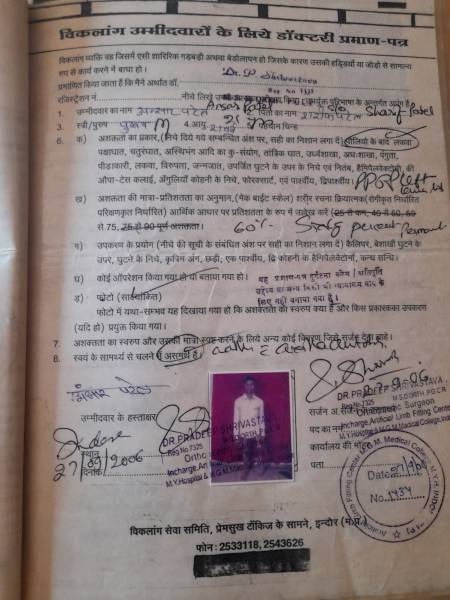 विकलांग उम्मीदवारों के लिये डॉक्टरी प्रमाण-पत्र
विकलांग व्यक्ति वह जिसमें एसी शारिरिक गड़बड़ी अथवा बेडोलापन हो जिसके कारण उसकी हड्डियों या जोड़ो से सामान्य
रुप से कार्य करने में बाधा हो।
प्रमाणित किया जाता हैं कि मैंने अर्थात डॉ. Dr. P Shrivastava
रजिस्ट्रेशन नं. नीचे लिखे Reg No 7325
1. उम्मीदवार का नाम अन्सार पटेल Ansar Patel 2. पिता का नाम शरीफ पटेल Sharif Patel
3. स्त्री/पुरुष पुरुष M 4. आयु 21 चिन्ह
6. क) अशक्तता का प्रकार, (नीचे दिये गये सम्बन्धित अंश पर, सही का निशान लगा दें) पोलियो के बाद लकवा
पक्षाघात, चतुरंघात, अस्थिभंग आदि का कु-संयोग, तांत्रिक घात, उर्ध्वशाखा, अध:शाखा, पंगुता,
पीड़ाकारी, लकवा, विरुपता, जन्मजात, उपर्जित घुटने के उपर के निचे एवं नितंब, हैमिपेलवेक्टोमी. की
औपा-टेस कलाई, अँगुलियाँ कोहनी के निचे, फोरक्वार्ट, एवं पार्श्वीय, द्विपार्श्वीय। PPRP Left
ख) अशक्तता की मात्रा-प्रतिशतता का अनुमान, (मेक बाईट स्केल) शरीर रचना क्रियात्मक (रोगीकृत निर्धारित
परिकणकृत निर्धारित) आर्थिक आधार पर प्रतिशतता के रुप में उल्लेख करें (25 से कम, 40 से 50, 50
से 75, 75 से 90 पूर्ण अशक्तता। 60% Sixty percent Permanent
ग) उपकरण के प्रयोग (नीचे की सूची के संबंधित अंश पर सही का निशान लगा दें) कैलिपर, बेशाखी घुटने के
उपर, घुटने के निचे, कृत्रिम अंग, छड़ी, एक पार्श्वीय, द्वि कोहनी के हैमिपेलवेटोमी, कन्ध सन्धि।
घ) कोई ऑपरेशन किया गया हो या बताया गया हो। यह प्रमाण-पत्र दुर्घटना क्लेम / क्षतिपूर्ति
ड़) फोटो (सत्यांकित) लिए नहीं बनाया गया है।
फोटो में यथा-सम्भव यह दिखाया गया हो कि अशक्तता का स्वरुप क्या है और किस प्रकारका उपकरण
(यदि हो) प्रयुक्त किया गया।
7. अशक्तता का स्वरुप और उसकी मात्रा स्पष्ट करने के लिये अन्य कोई विवरण जिसे सर्जन देता चाहे।
8. स्वयं के सामर्थ्य से चलने में असमर्थ है।
अंसार पटेल
उम्मीदवार के हस्ताक्षर
Indore
स्थान
27/09/2006
दिनांक
DR. PRADEEP SHRIVASTAVA
Reg No 7325
M.S. ORTH, P.G.C.R
Incharge Artificial
M.Y. Hospital & M.G.M Medical
27-9-06
DR. PRADEEP SHRIVASTAVA
Reg. No. 7325 M.S. ORTH, P.G.C.R
Orthopaedic Surgeon
Incharge, Artificial Limb Fitting Center
M.Y. Hospital & M.G.M Medical College, Indore
सर्जन
पद का नाम
कार्यालय की मोहर
पता
Artificial Limb Fitting Center M.G.M. Medical College & M.Y.H. INDORE
Date
No. 1434
विकलांग सेवा समिति, प्रेमसुख टॉकिज के सामने, इन्दौर (म.प्र.)
फोन : 2533118, 2543626